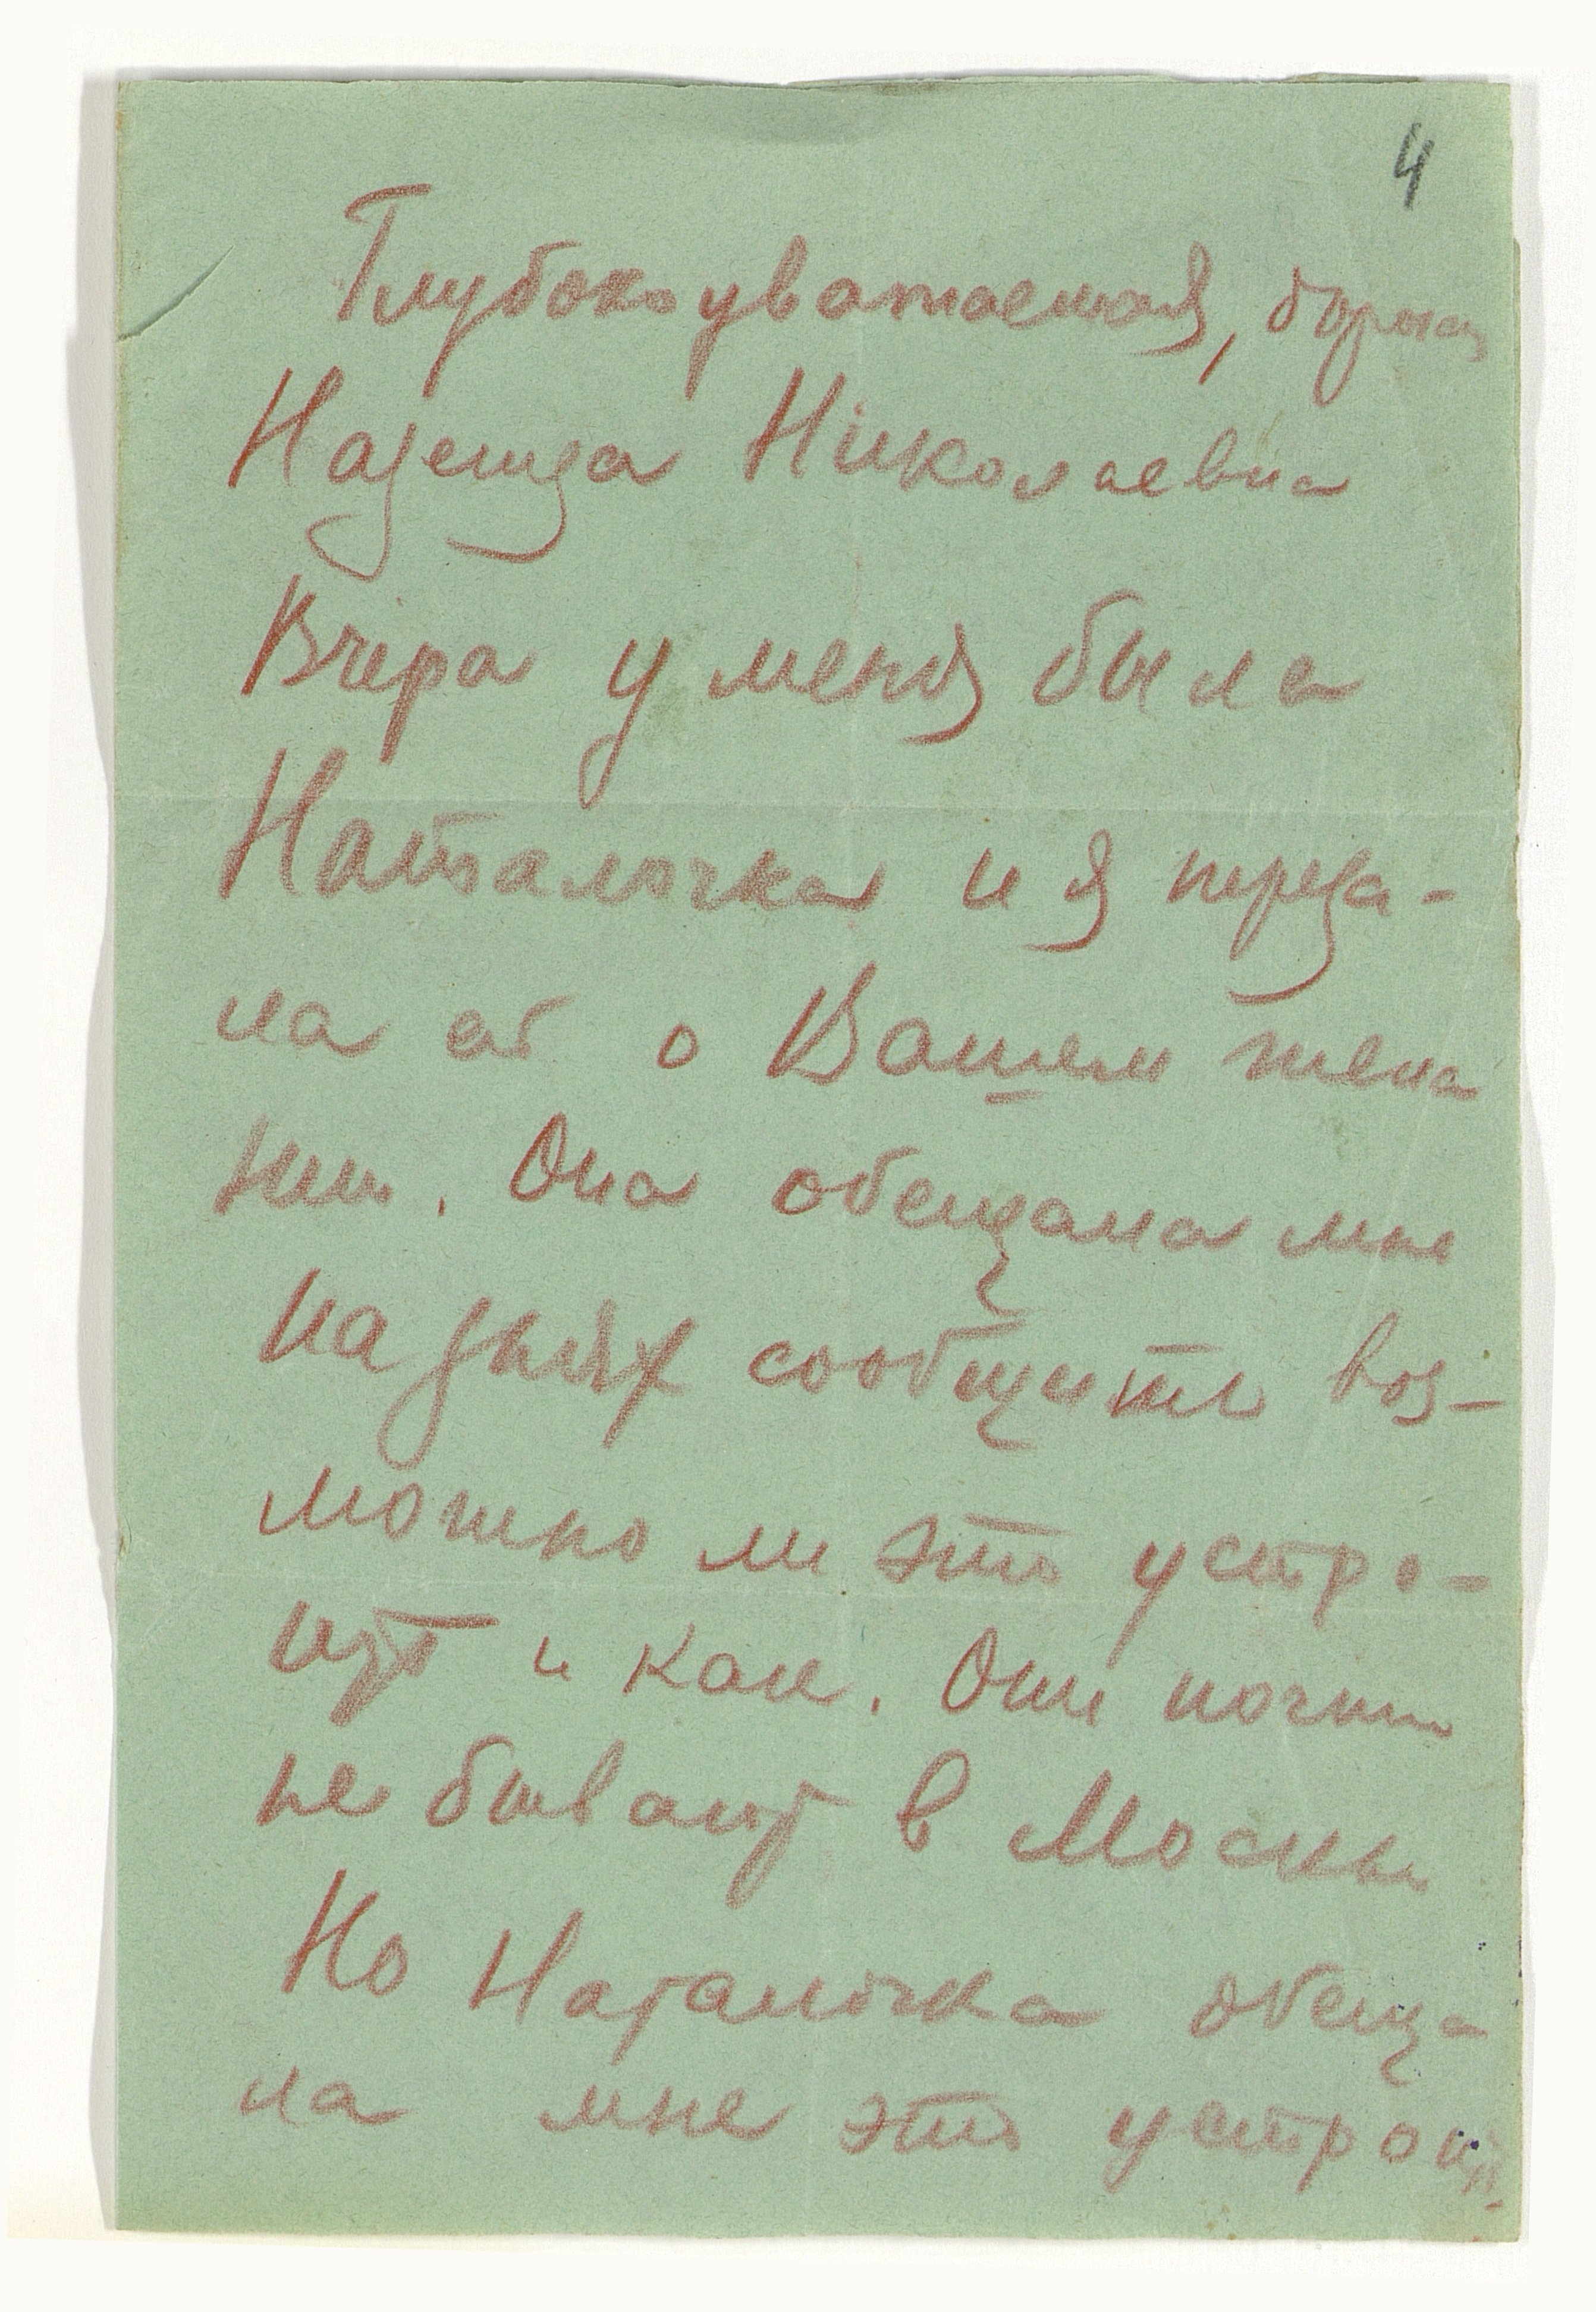 4
Глубокоуважаемая, дорогая
Надежда Николаевна
Вчера у меня была
Наталочка и я переда-
ла ей о Вашем жела
нии. Она обещала мне
на днях сообщить воз-
можно ли это устро-
ить и как. Они почти
не бывают в Москве
Но Наталочка обеща
ла мне это устроить.